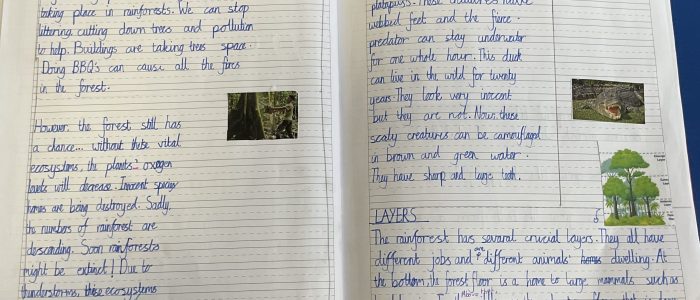 taking place in rainforests. We can stop
littering cutting down trees and pollution
to help. Buildings are taking trees space.
Doing BBQ's can cause all the fires
in the forest.
However, the forest still has
a chance... without these vital
ecosystems, the plants' oxogen
levels will decrease. Innocent
homes are being destroyed. Sadly,
the numbers of rainforest are
descanding. Soon rainforests
might be extinct! Due to
thunderstorms, these ecosystems
platapuss. These creatures have
webbed feet and the fierce
predator can stay underwater
for one whole hour. This duck
can live in the wild for twenty
years. They look very inocent
but they are not. Now these
scaly creatures can be camouflaged
in brown and green water.
They have sharp and large teeth.
LAYERS
The rainforest has several crucial layers. They all have
different jobs and are different animals' dwelling. At
the bottom, the forest floor is a home to large mammals such as